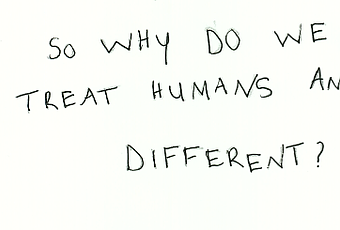 SO WHY DO WE
TREAT HUMANS AN
DIFFERENT?